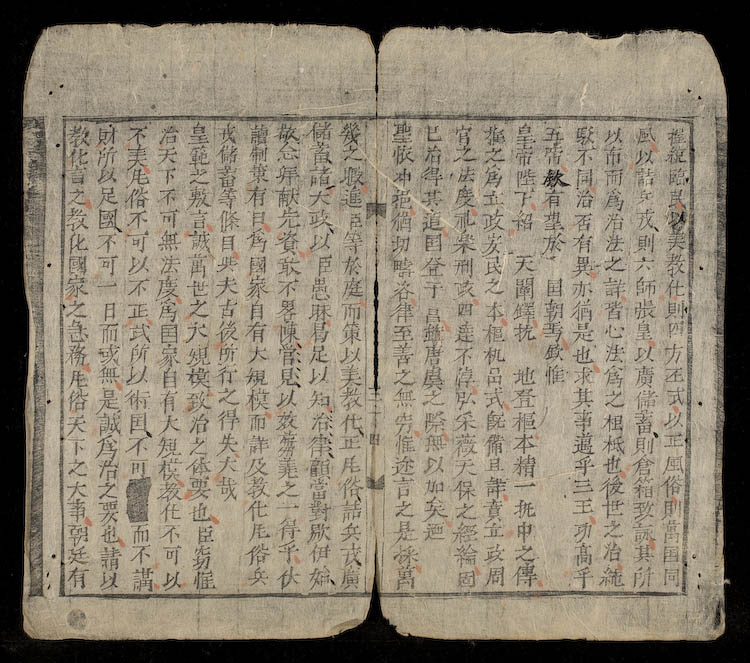 視臨民以美教化則四方丕式以正風俗則萬国同
風以詰兵戎則六師張皇以廣儲蓄則倉箱致詠其所
以布而爲治法之詳皆心法爲之根柢也後世之治純
駁不同治否有異亦猶是也求其事邁乎三王功高乎
五帝歟有望於 国朝焉欽惟
皇帝陛下紹 天闡鐸執 地登樞本精一执中之傳
推之爲立政友民之本樞机吕式既備且詳責立政周
官之法度礼樂刑政四達不停弘采薇天保之經綸固
已治得其道国登于 昌雖唐虞之際無以加矣迺
聖懷冲挹猶切疇咨律至善之無旁惟迩言之是採萬
三十四
幾之暇進臣等於庭而策以美教化正風俗詰兵戎廣
儲蓄諸大政以臣愚昧曷足以知治律顧當對歇伊始
敬念拜献先資敢不畧陳管見以效芻蕘之一得乎伏
讀制策有曰爲國家自有大規模而詳及教化風俗兵
戎儲蓄等條目與夫古後所行之得失大哉
皇範之敷言誠萬世之大規模致治之体要也臣窃惟
治天下不可無法度爲国家自有大規模教化不可以
不美風俗不可以不正式所以衛国不可而不講
財所以足國不可一日而或無是誠爲治之要也請以
教化言之教化國家之急務風俗天下之大事朝廷有